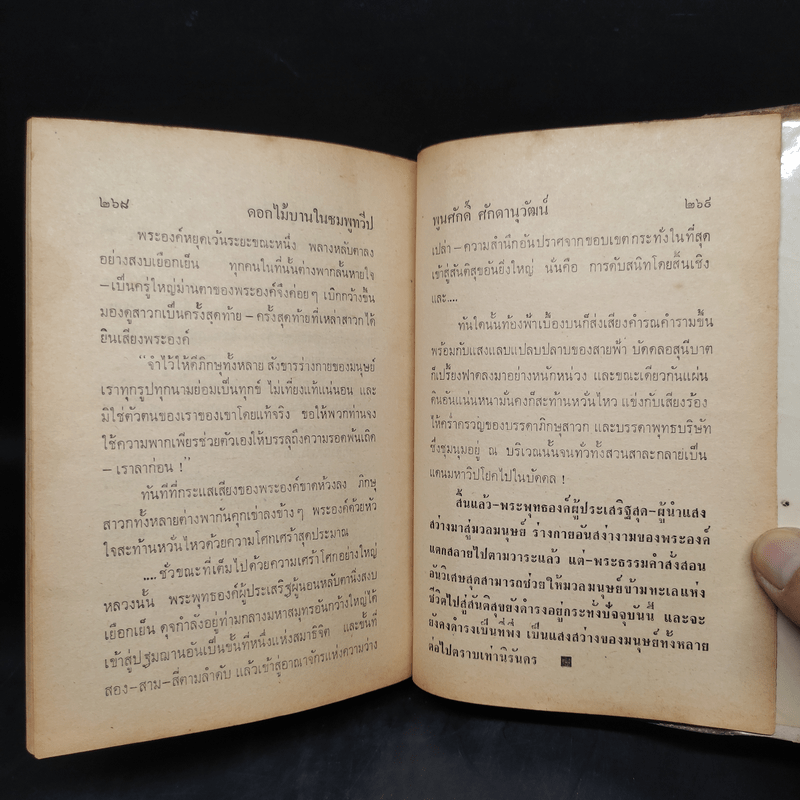 ๒๖๘
ดอกไม้บานในชมพูทวีป
พระองค์หยุดเว้นระยะขณะหนึ่ง พลางหลับตาลง
อย่างสงบเยือกเย็น ทุกคนในที่นั้นต่างพากลั้นหายใจ
–เป็นครู่ใหญ่ม่านตาของพระองค์จึงค่อยๆ เบิกกว้างขึ้น
มองดูสาวกเป็นครั้งสุดท้าย – ครั้งสุดท้ายที่เหล่าสาวกได้
ยินเสียงพระองค์
“จำไว้ให้ดีภิกษุทั้งหลาย สังขารร่างกายของมนุษย์
เราทุกรูปทุกนามย่อมเป็นทุกข์ ไม่เที่ยงแท้แน่นอน และ
มิใช่ตัวตนของเราของเขาโดยแท้จริง ขอให้พวกท่านจง
ใช้ความพากเพียรช่วยตัวเองให้บรรลุถึงความรอดพ้นเถิด
– เราลาก่อน !”
ทันทีที่กระแสเสียงของพระองค์ขาดห้วงลง ภิกษุ
สาวกทั้งหลายต่างพากันคุกเข่าลงช้าๆ พระองค์ด้วยหัว
ใจสะท้านหวั่นไหวด้วยความโศกเศร้าสุดประมาณ
....ชั่วขณะที่เต็มไปด้วยความเศร้าโศกอย่างใหญ่
หลวงนั้น พระพุทธองค์ผู้ประเสริฐผู้นอนหลับตานิ่งสงบ
เยือกเย็น ดุจกำลังอยู่ท่ามกลางมหาสมุทรอันกว้างใหญ่ได้
เข้าสู่ปฐมฌานอันเป็นขั้นที่หนึ่งแห่งสมาธิจิต และขั้นที่
สอง–สาม–สี่ตามลำดับ แล้วเข้าสู่อาณาจักรแห่งความว่าง
พูนศักดิ์ ศักดานุวัฒน์
๒๖๙
เปล่า – ความสำนึกอันปราศจากขอบเขต กระทั่งในที่สุด
เข้าสู่สันติสุขอันยิ่งใหญ่ นั่นคือ การดับสนิทโดยสิ้นเชิง
และ....
ทันใดนั้นท้องฟ้าเบื้องบนก็ส่งเสียงคำรณคำรามขึ้น
พร้อมกับแสงแลบแปลบปลาบของสายฟ้า บัดดลอสุนีบาต
ก็เปรี้ยงฟาดลงมาอย่างหนักหน่วง และขณะเดียวกันแผ่น
ดินอันแน่นหนามั่นคงก็สะท้านหวั่นไหว แข่งกับเสียงร้อง
ไห้คร่ำครวญของบรรดาภิกษุสาวก และบรรดาพุทธบริษัท
ซึ่งชุมนุมอยู่ ณ บริเวณนั้นจนทั่วทั้งสวนสาละกลายเป็น
แดนมหาวิปโยคไปในบัดดล !
สิ้นแล้ว–พระพุทธองค์ผู้ประเสริฐสุด–ผู้นำแสง
สว่างมาสู่มวลมนุษย์ ร่างกายอันสง่างามของพระองค์
แตกสลายไปตามวาระแล้ว แต่–พระธรรมคำสั่งสอน
อันวิเศษสุดสามารถช่วยให้มวลมนุษย์ข้ามทะเลแห่ง
ชีวิตไปสู่สันติสุขยังดำรงอยู่กระทั่งปัจจุบันนี้ และจะ
ยังคงดำรงเป็นที่พึ่ง เป็นแสงสว่างของมนุษย์ทั้งหลาย
ต่อไปตราบเท่านิรันดร